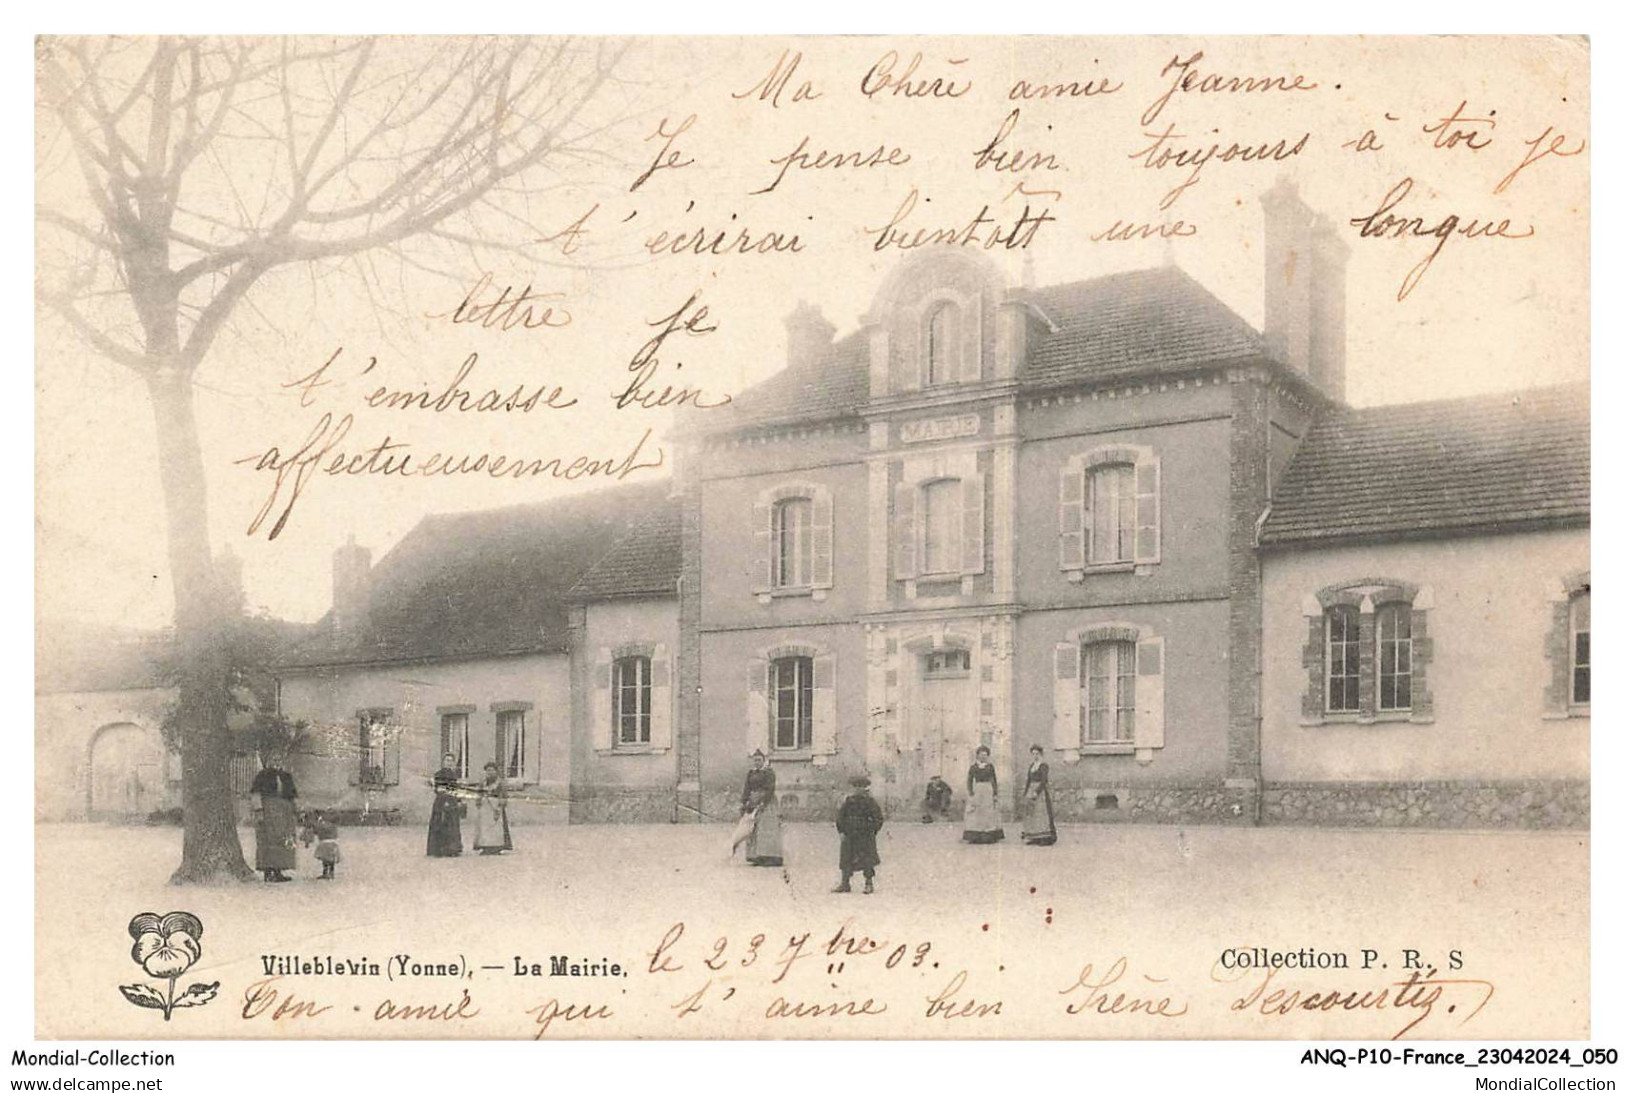 Ma Chère amie Jeanne.
Je pense bien toujours à toi je
t'écrirai bientôtt une longue
lettre je
t'embrasse bien
affectueusement
MAIRIE
Villeblevin (Yonne). — La Mairie. le 23 7bre 03.
Collection P. R. S
Ton amie qui t'aime bien Irène Descourtis.
Mondial-Collection
ANQ-P10-France_23042024_050
www.delcampe.net
MondialCollection